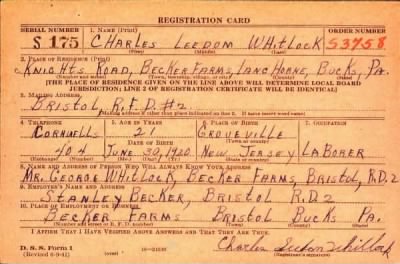 REGISTRATION CARD
SERIAL NUMBER 1. NAME (Print) ORDER NUMBER
S 175 CHARLES LEEDOM WHITLOCK S3758
(First) (Middle) (Last)
2. PLACE OF RESIDENCE (Print)
KNIGHTS ROAD, BECKER FARMS, LANGHORNE, BUCKS, PA.
[THE PLACE OF RESIDENCE GIVEN ON THE LINE ABOVE WILL DETERMINE LOCAL BOARD
JURISDICTION; LINE 2 OF REGISTRATION CERTIFICATE WILL BE IDENTICAL]
3. MAILING ADDRESS
BRISTOL, R.F.D. #2
4. TELEPHONE 5. AGE IN YEARS 6. PLACE OF BIRTH 7. OCCUPATION
CORNWELLS 21 GROVEVILLE
DATE OF BIRTH (Town or county)
404 JUNE 30, 1920 NEW JERSEY LABORER
(Exchange) (Number) (Mo.) (Day) (Yr.) (State or country)
8. NAME AND ADDRESS OF PERSON WHO WILL ALWAYS KNOW YOUR ADDRESS
MR. GEORGE WHITLOCK, BECKER FARMS, BRISTOL, R.D.2
9. EMPLOYER'S NAME AND ADDRESS
STANLEY BECKER, BRISTOL R.D.2
10. PLACE OF EMPLOYMENT OR BUSINESS
BECKER FARMS BRISTOL BUCKS PA.
(Number and street or R. F. D. number) (Town) (County) (State)
I AFFIRM THAT I HAVE VERIFIED ABOVE ANSWERS AND THAT THEY ARE TRUE.
D. S. S. Form 1
(Revised 6-9-41) (over) Charles Leedom Whitlock
(Registrant's signature)